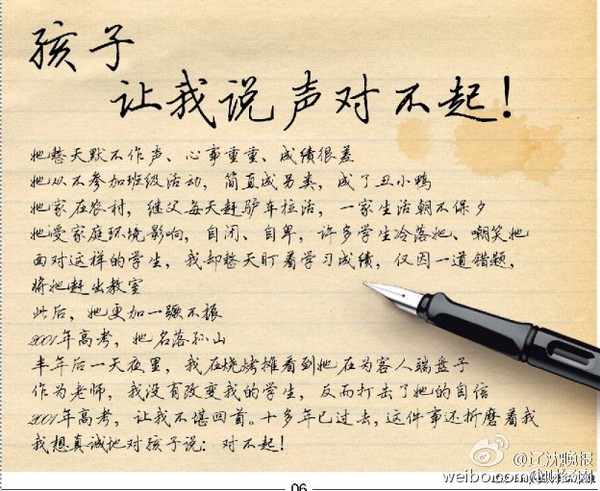 孩子
让我说声对不起!
她整天默不作声、心事重重、成绩很差
她从不参加班级活动，简直成另类，成了丑小鸭
她家在农村，继父每天赶驴车拉活，一家生活朝不保夕
她受家庭环境影响，自闭、自卑，许多学生冷落她、嘲笑她
面对这样的学生，我却整天盯着学习成绩，仅因一道错题，
将她赶出教室
此后，她更加一蹶不振
2001年高考，她名落孙山
半年后一天夜里，我在烧烤摊看到她在为客人端盘子
作为老师，我没有改变我的学生，反而打击了她的自信
2001年高考，让我不堪回首。十多年已过去，这件事还折磨着我
我想真诚地对孩子说：对不起!
@辽沈晚报
weibo.com/
06